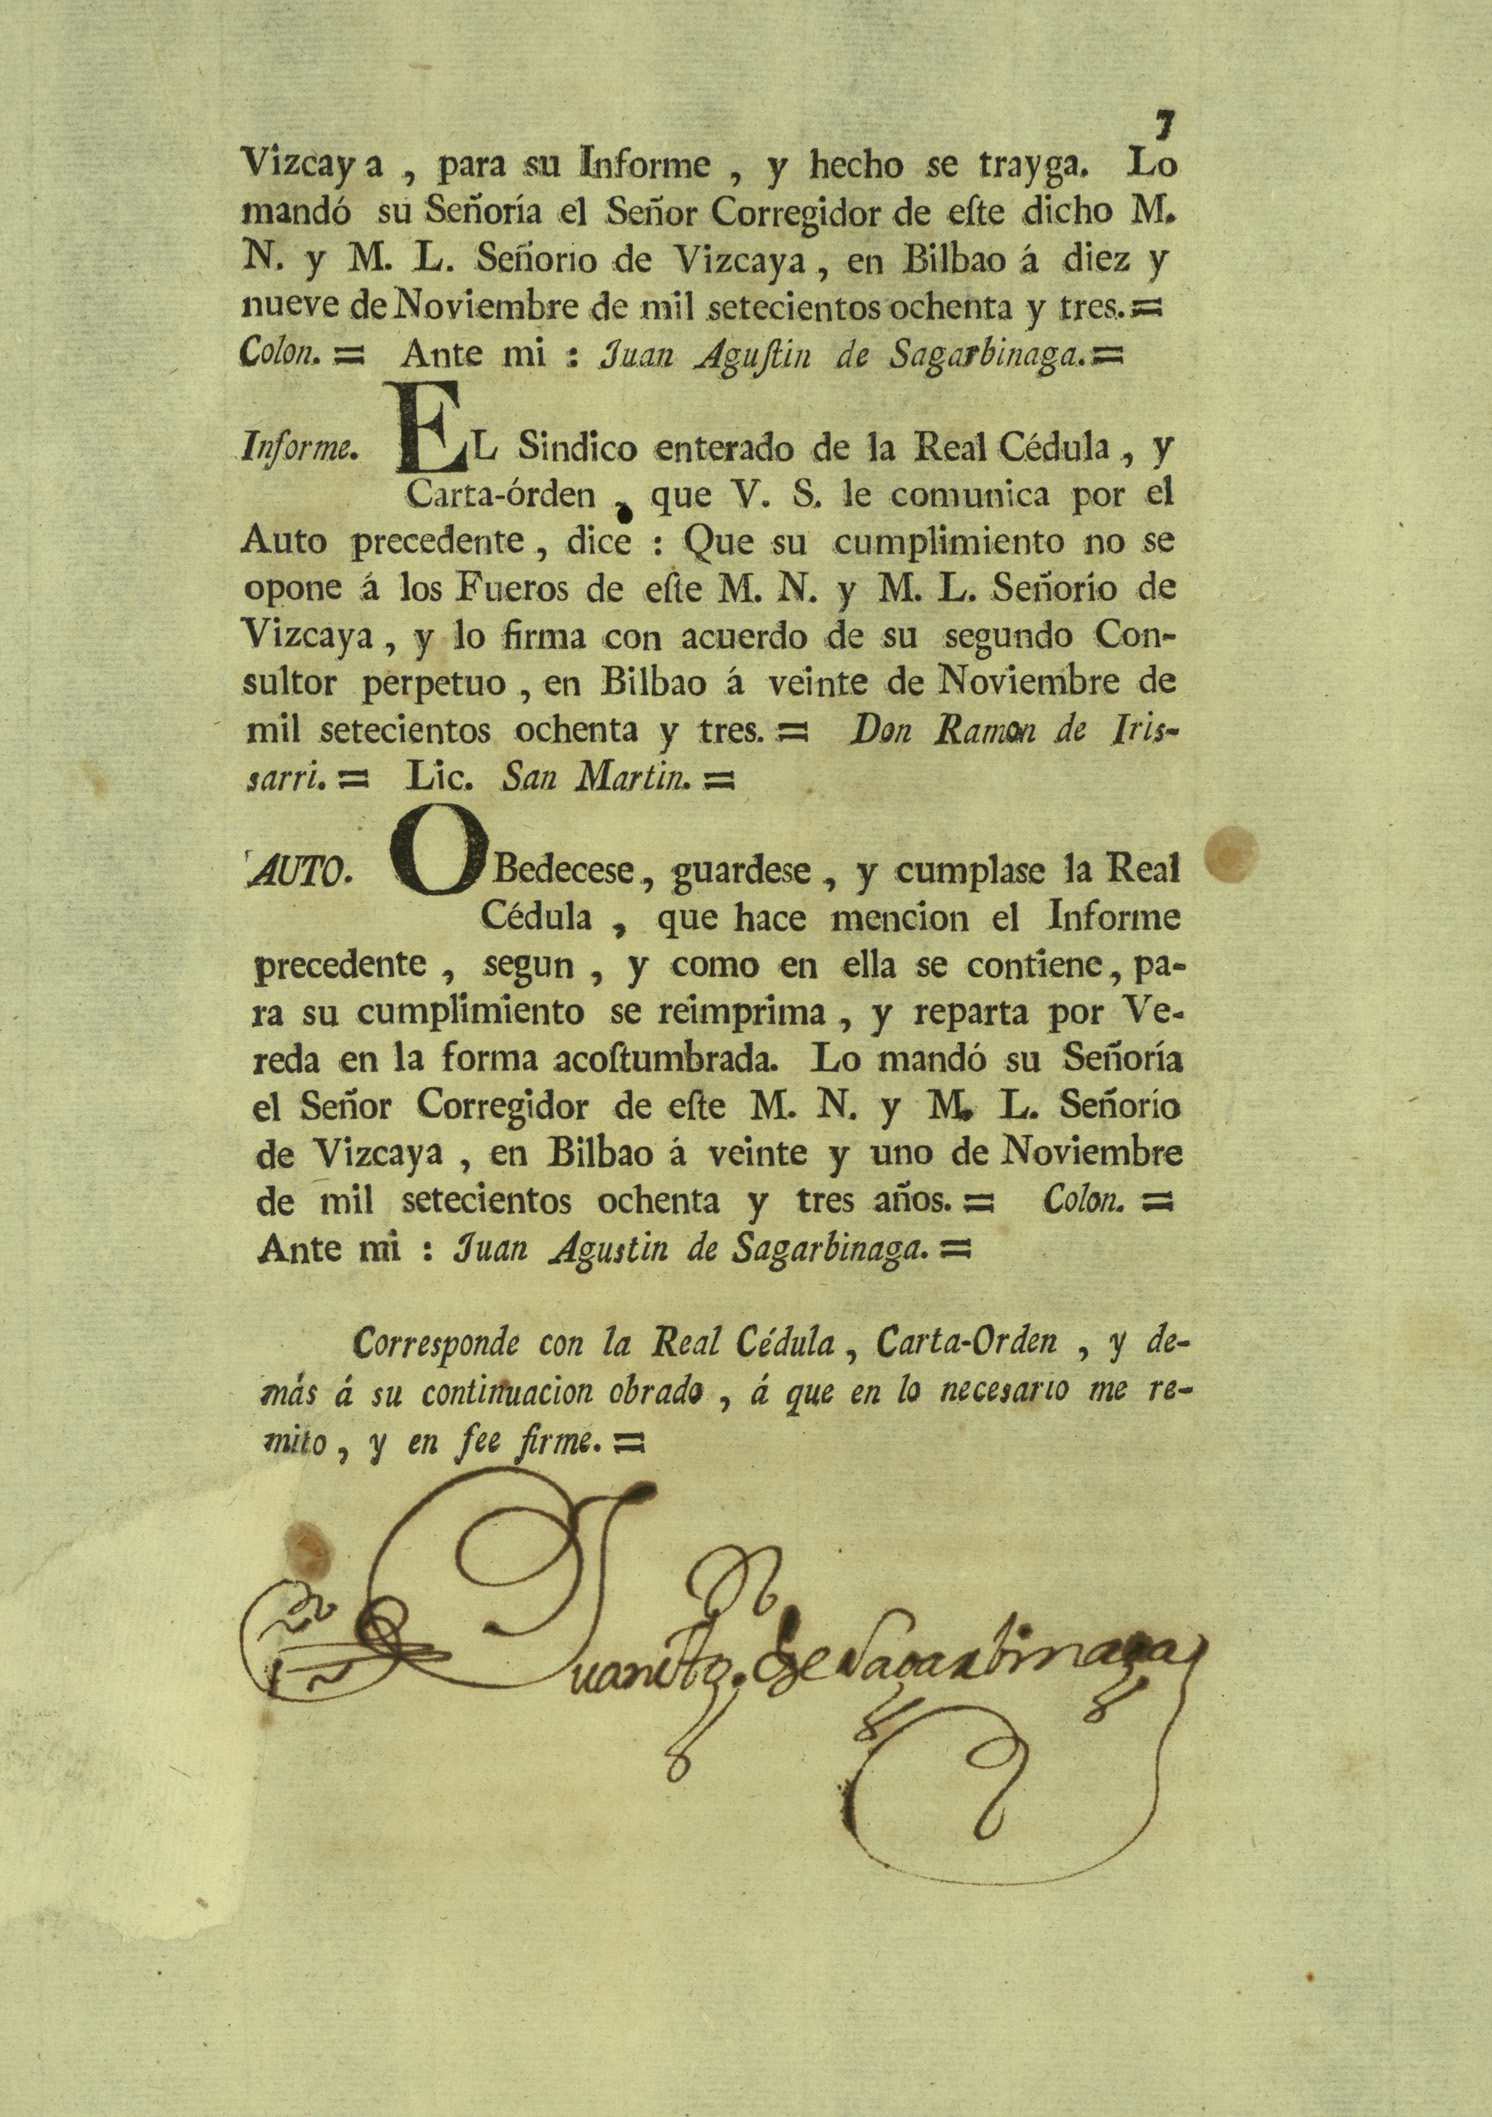 7
Vizcaya , para su Informe , y hecho se trayga. Lo
mandó su Señoría el Señor Corregidor de eſte dicho M.
N. y M. L. Señorio de Vizcaya , en Bilbao á diez y
nueve de Noviembre de mil setecientos ochenta y tres. =
Colon. = Ante mi : Juan Aguſtin de Sagarbinaga. =
Informe. EL Sindico enterado de la Real Cédula , y
Carta-órden , que V. S. le comunica por el
Auto precedente , dice : Que su cumplimiento no se
opone á los Fueros de eſte M. N. y M. L. Señorío de
Vizcaya , y lo firma con acuerdo de su segundo Con-
sultor perpetuo , en Bilbao á veinte de Noviembre de
mil setecientos ochenta y tres. = Don Ramon de Iris-
sarri. = Lic. San Martin. =
AUTO. OBedecese , guardese , y cumplase la Real
Cédula , que hace mencion el Informe
precedente , segun , y como en ella se contiene , pa-
ra su cumplimiento se reimprima , y reparta por Ve-
reda en la forma acoſtumbrada. Lo mandó su Señoría
el Señor Corregidor de eſte M. N. y M. L. Señorío
de Vizcaya , en Bilbao á veinte y uno de Noviembre
de mil setecientos ochenta y tres años. = Colon. =
Ante mi : Juan Agustin de Sagarbinaga. =
Corresponde con la Real Cédula , Carta-Orden , y de-
más á su continuacion obrado , á que en lo necesario me re-
mito , y en fee firme. =
de Sagarbinaga